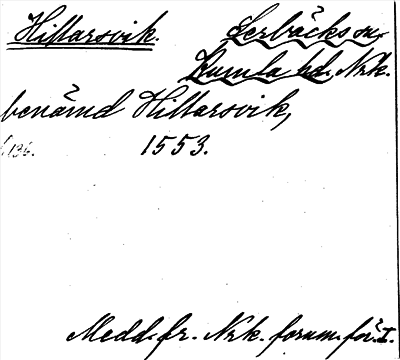 Hillarsvik. Lerbäcks sn.
Kumla hd. Nrk.
benämd Hillarsvik,
s. 136. 1553.
Medd. fr. Nrk. fornm. för. I.